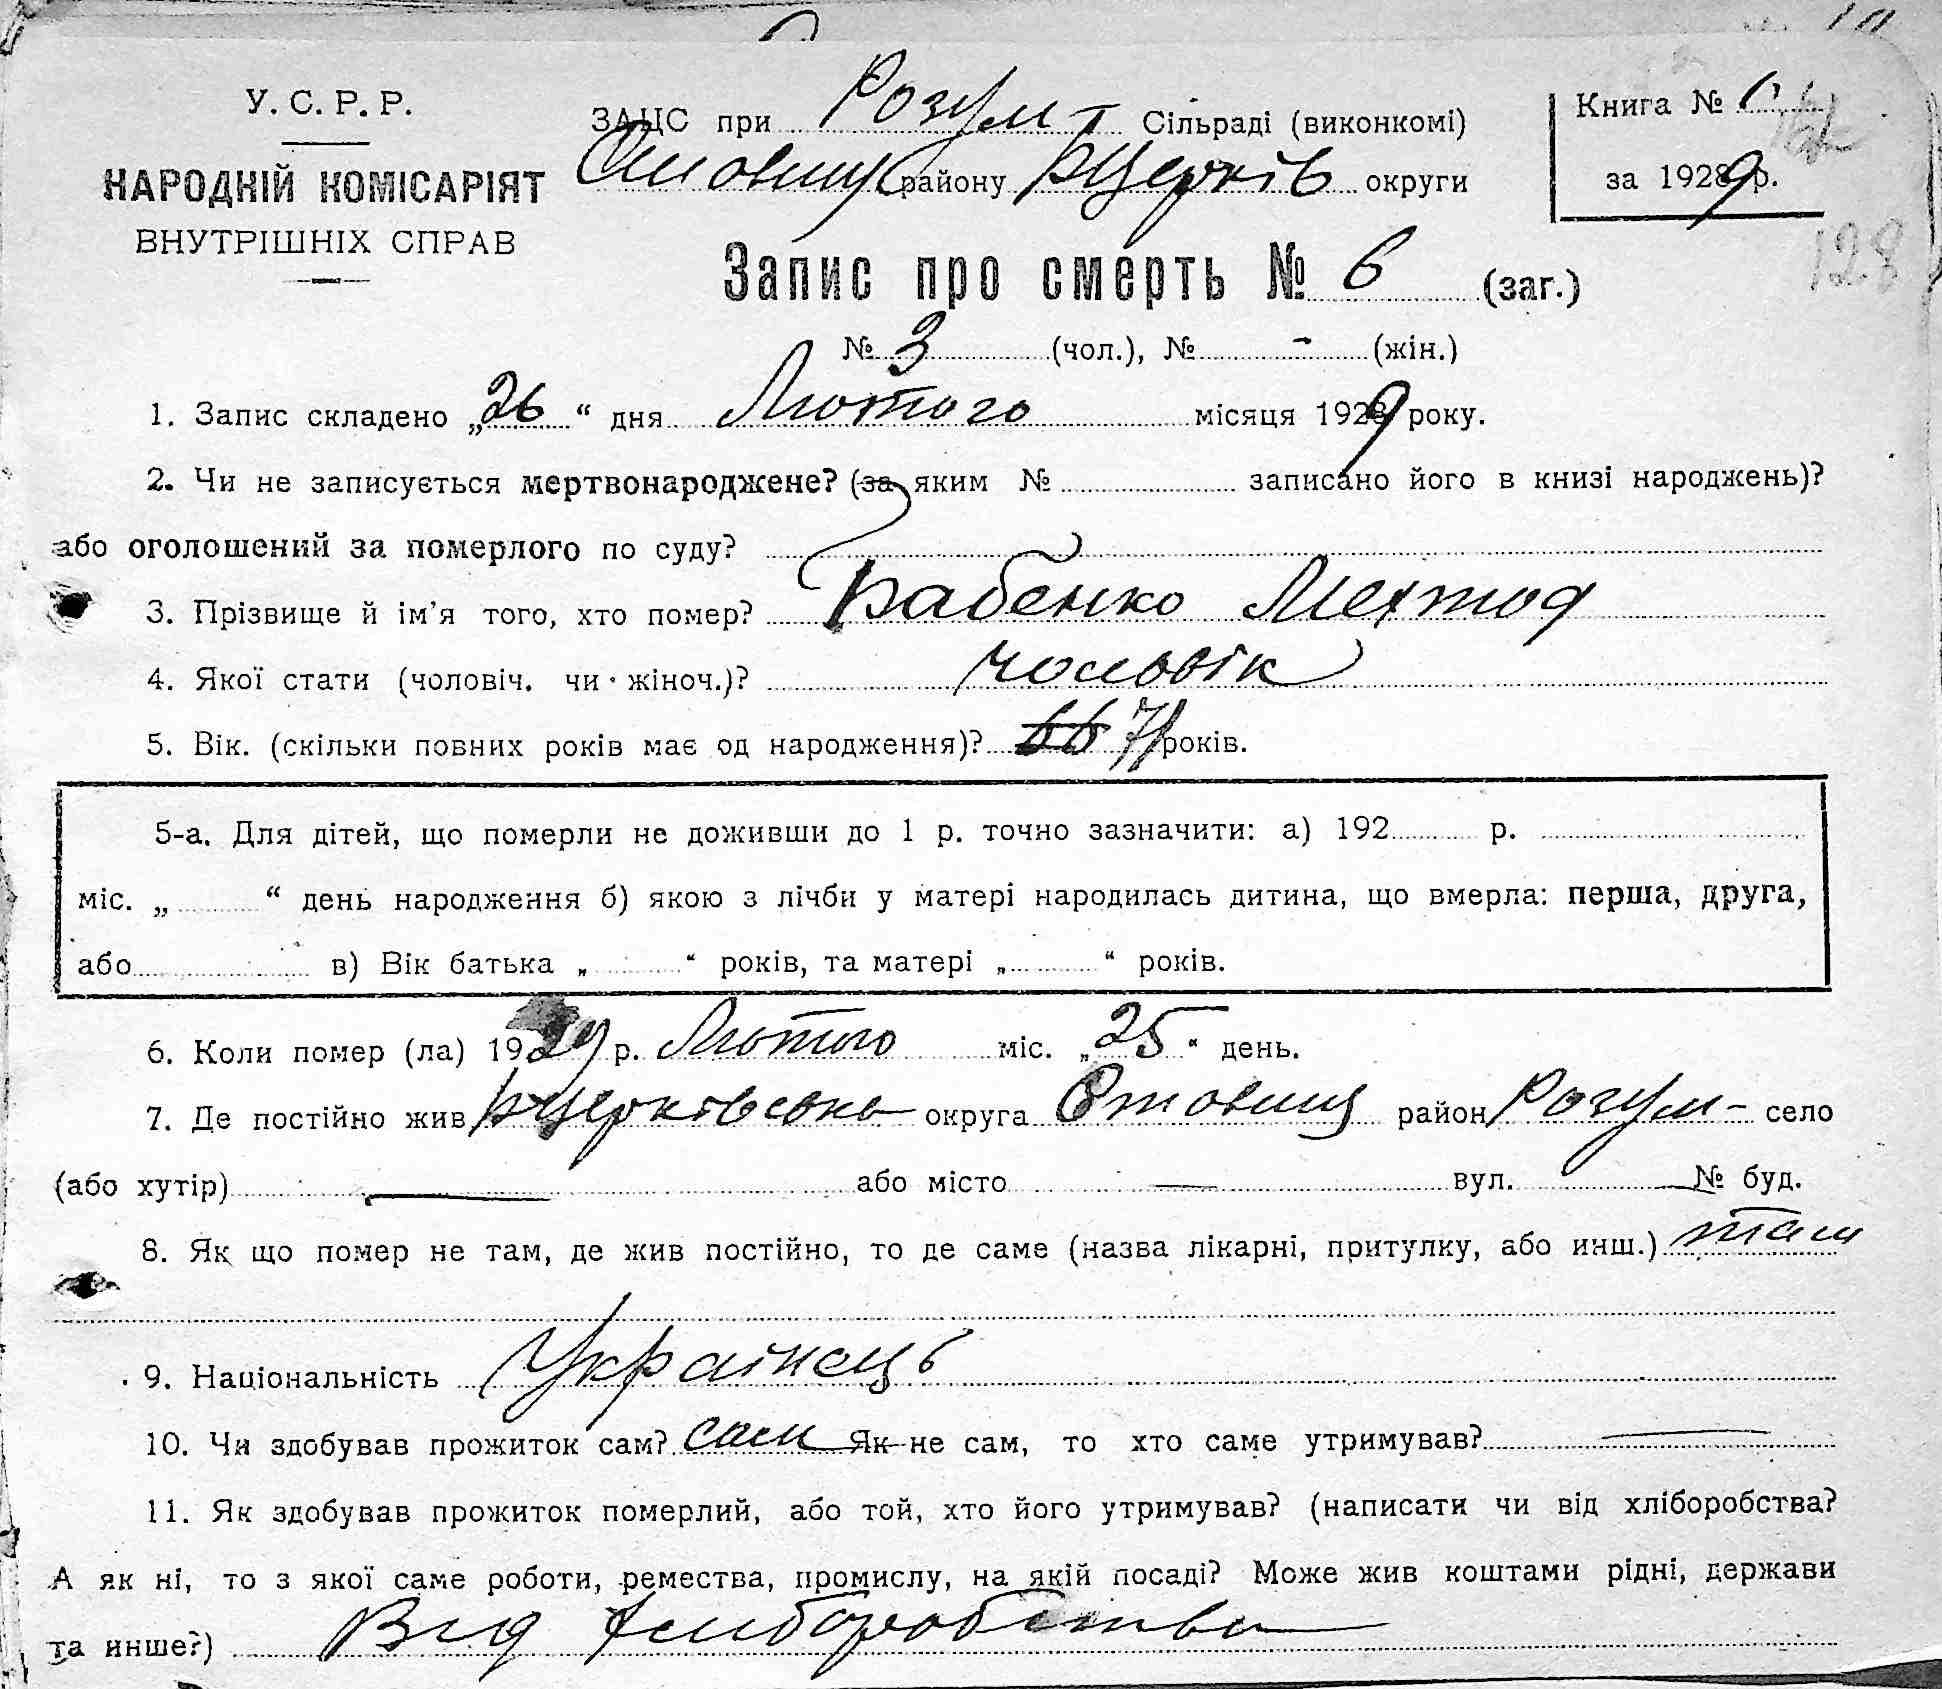 У. С. Р. Р.
НАРОДНІЙ КОМІСАРІЯТ
ВНУТРІШНІХ СПРАВ
ЗАЦС при Розум Сільраді (виконкомі)
району БЦерків округи
Книга №
за 1929 р.
128
Запис про смерть № 6 (заг.)
№ 3 (чол.), № - (жін.)
1. Запис складено „26“ дня Лютого місяця 1929 року.
2. Чи не записується мертвонароджене? (за яким № записано його в книзі народжень)?
або оголошений за померлого по суду?
3. Прізвище й ім'я того, хто помер? Бабенко Мехтод
4. Якої стати (чоловіч. чи жіноч.)? чоловік
5. Вік. (скільки повних років має од народження)? 66 71 років.
5-а. Для дітей, що померли не доживши до 1 р. точно зазначити: а) 192 р.
міс. „ “ день народження б) якою з лічби у матері народилась дитина, що вмерла: перша, друга,
або в) Вік батька „ “ років, та матері „ “ років.
6. Коли помер (ла) 1929 р. Лютого міс. „25“ день.
7. Де постійно жив БЦерківська округа район Розум- село
(або хутір) — або місто — вул. — № буд.
8. Як що помер не там, де жив постійно, то де саме (назва лікарні, притулку, або инш.) там
9. Національність Українець
10. Чи здобував прожиток сам? сам Як не сам, то хто саме утримував? —
11. Як здобував прожиток померлий, або той, хто його утримував? (написати чи від хліборобства?
А як ні, то з якої саме роботи, ремества, промислу, на якій посаді? Може жив коштами рідні, держави
та инше?) Від хліборобства